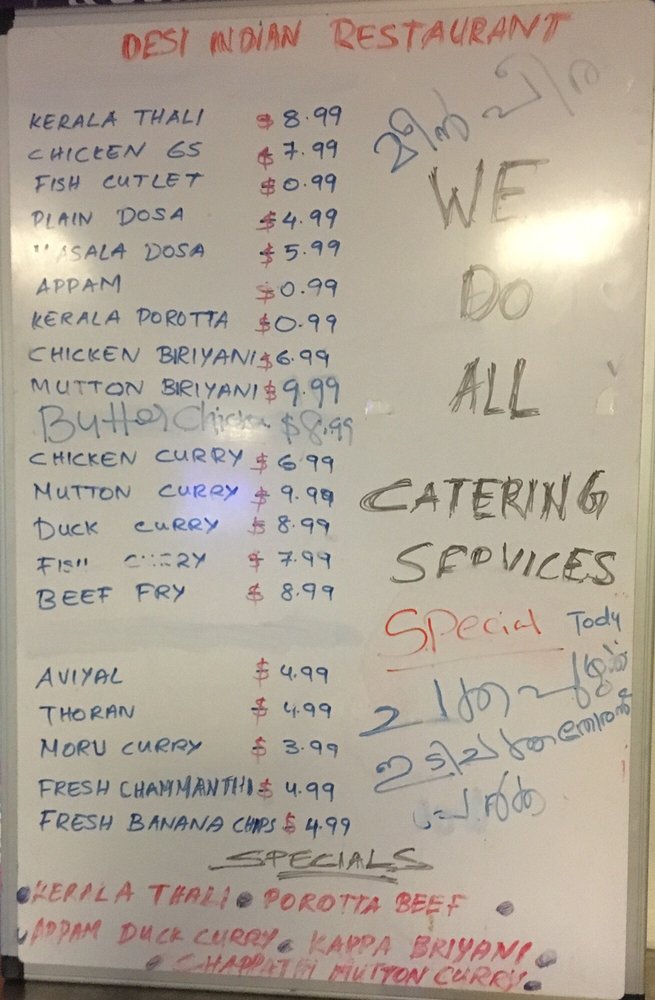 DESI INDIAN RESTAURANT
KERALA THALI $ 8.99
CHICKEN 65 $ 7.99
FISH CUTLET $ 0.99
PLAIN DOSA $ 4.99
ASALA DOSA $ 5.99
APPAM $ 0.99
KERALA POROTTA $ 0.99
CHICKEN BIRIYANI $ 6.99
MUTTON BIRIYANI $ 9.99
Butter Chicken $ 8.99
CHICKEN CURRY $ 6.99
MUTTON CURRY $ 9.99
DUCK CURRY $ 8.99
FISH CURRY $ 7.99
BEEF FRY $ 8.99
AVIYAL $ 4.99
THORAN $ 4.99
MORU CURRY $ 3.99
FRESH CHAMMANTHI $ 4.99
FRESH BANANA CHIPS $ 4.99
മീൻ പീര
WE
DO
ALL
CATERING
SERVICES
Special Tody
SPECIALS
KERALA THALI POROTTA BEEF
APPAM DUCK CURRY KAPPA BRIYANI
CHAPPATHI MUTTON CURRY